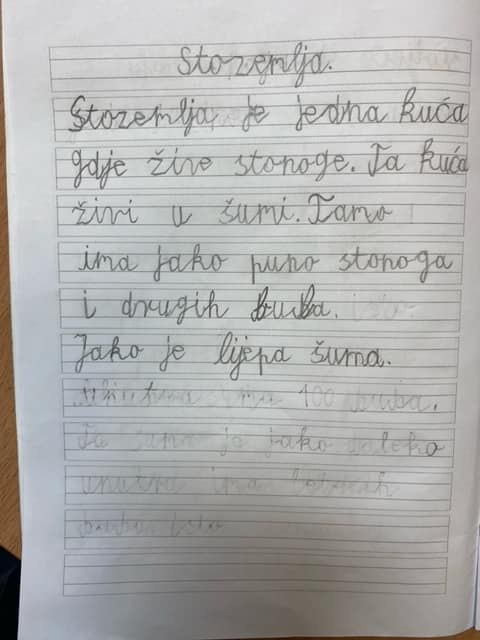 Stozemlja.
Stozemlja je jedna kuća
gdje žive stonoge. Ta kuća
živi u šumi. Tamo
ima jako puno stonoga
i drugih buba.
Jako je lijepa šuma.
ima 100 buba.
Ta šuma je jako daleko
unutra ima
buba